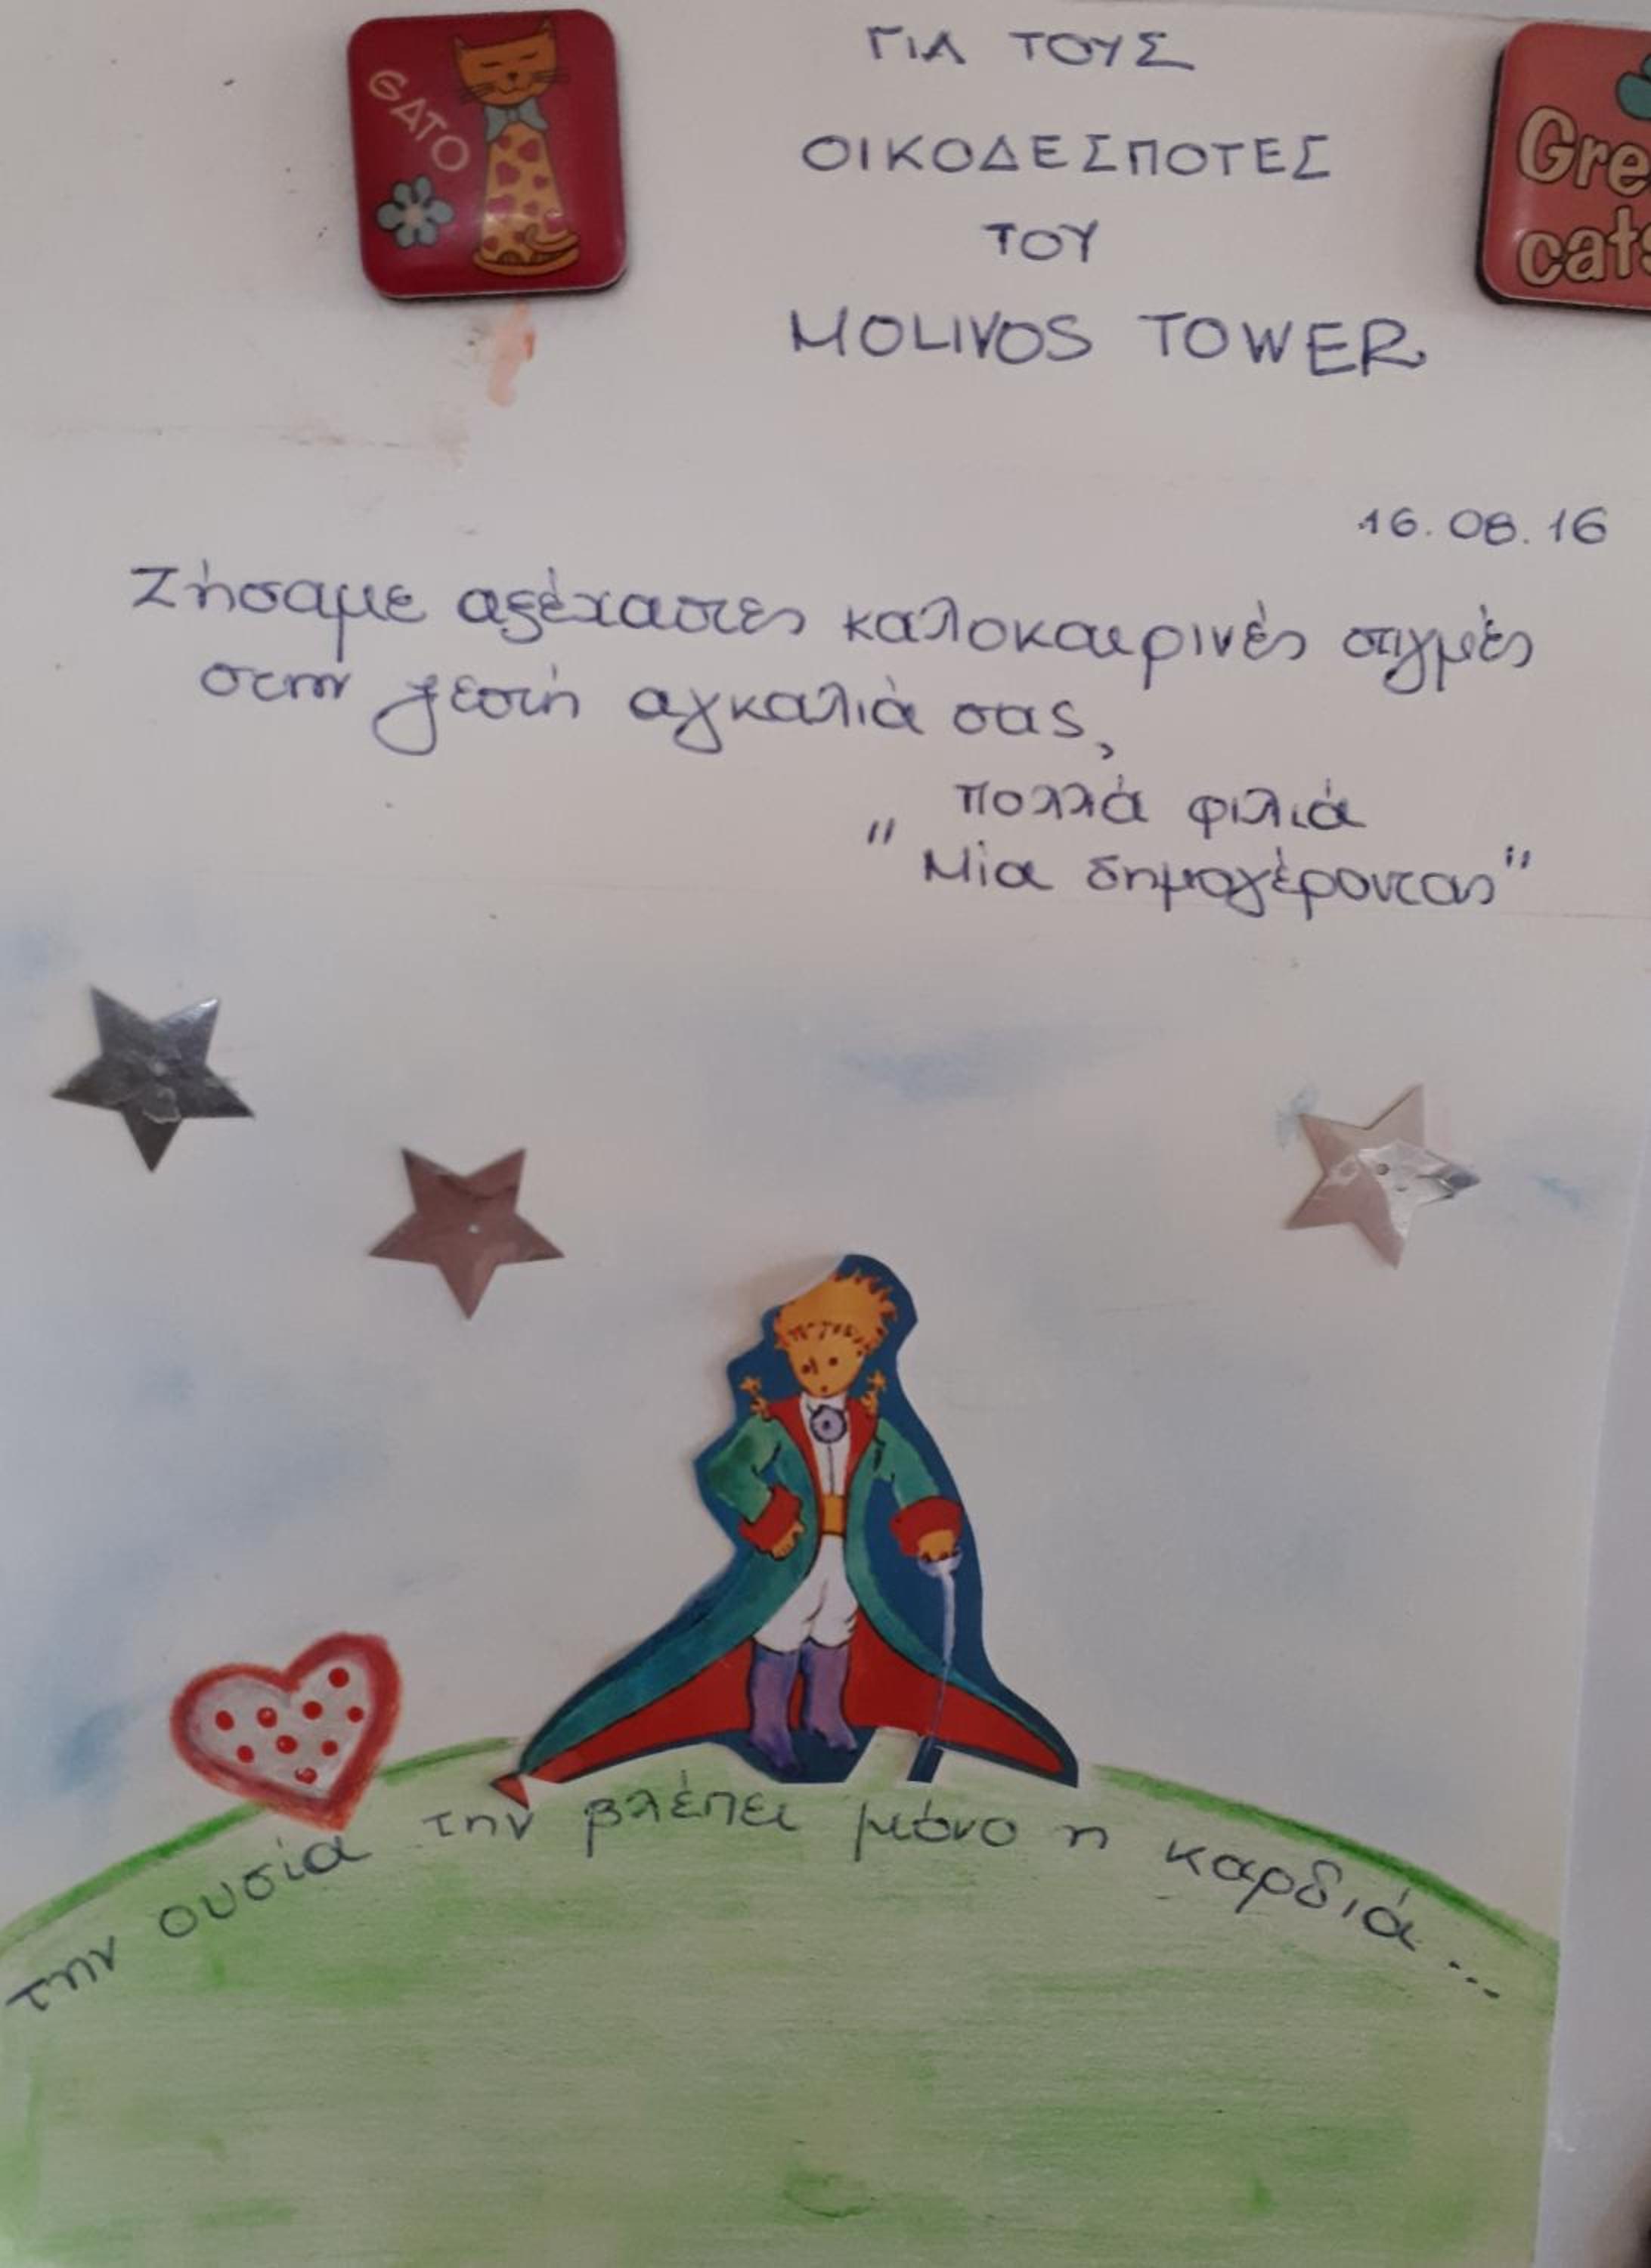 GATO
Gre
cats
ΓΙΑ ΤΟΥΣ
ΟΙΚΟΔΕΣΠΟΤΕΣ
ΤΟΥ
MOLIVOS TOWER
16.08.16
Ζήσαμε αξέχαστες καλοκαιρινές στιγμές
στην ζεστή αγκαλιά σας,
πολλά φιλιά
"Μία δημογέροντας"
την ουσία την βλέπει μόνο η καρδιά...